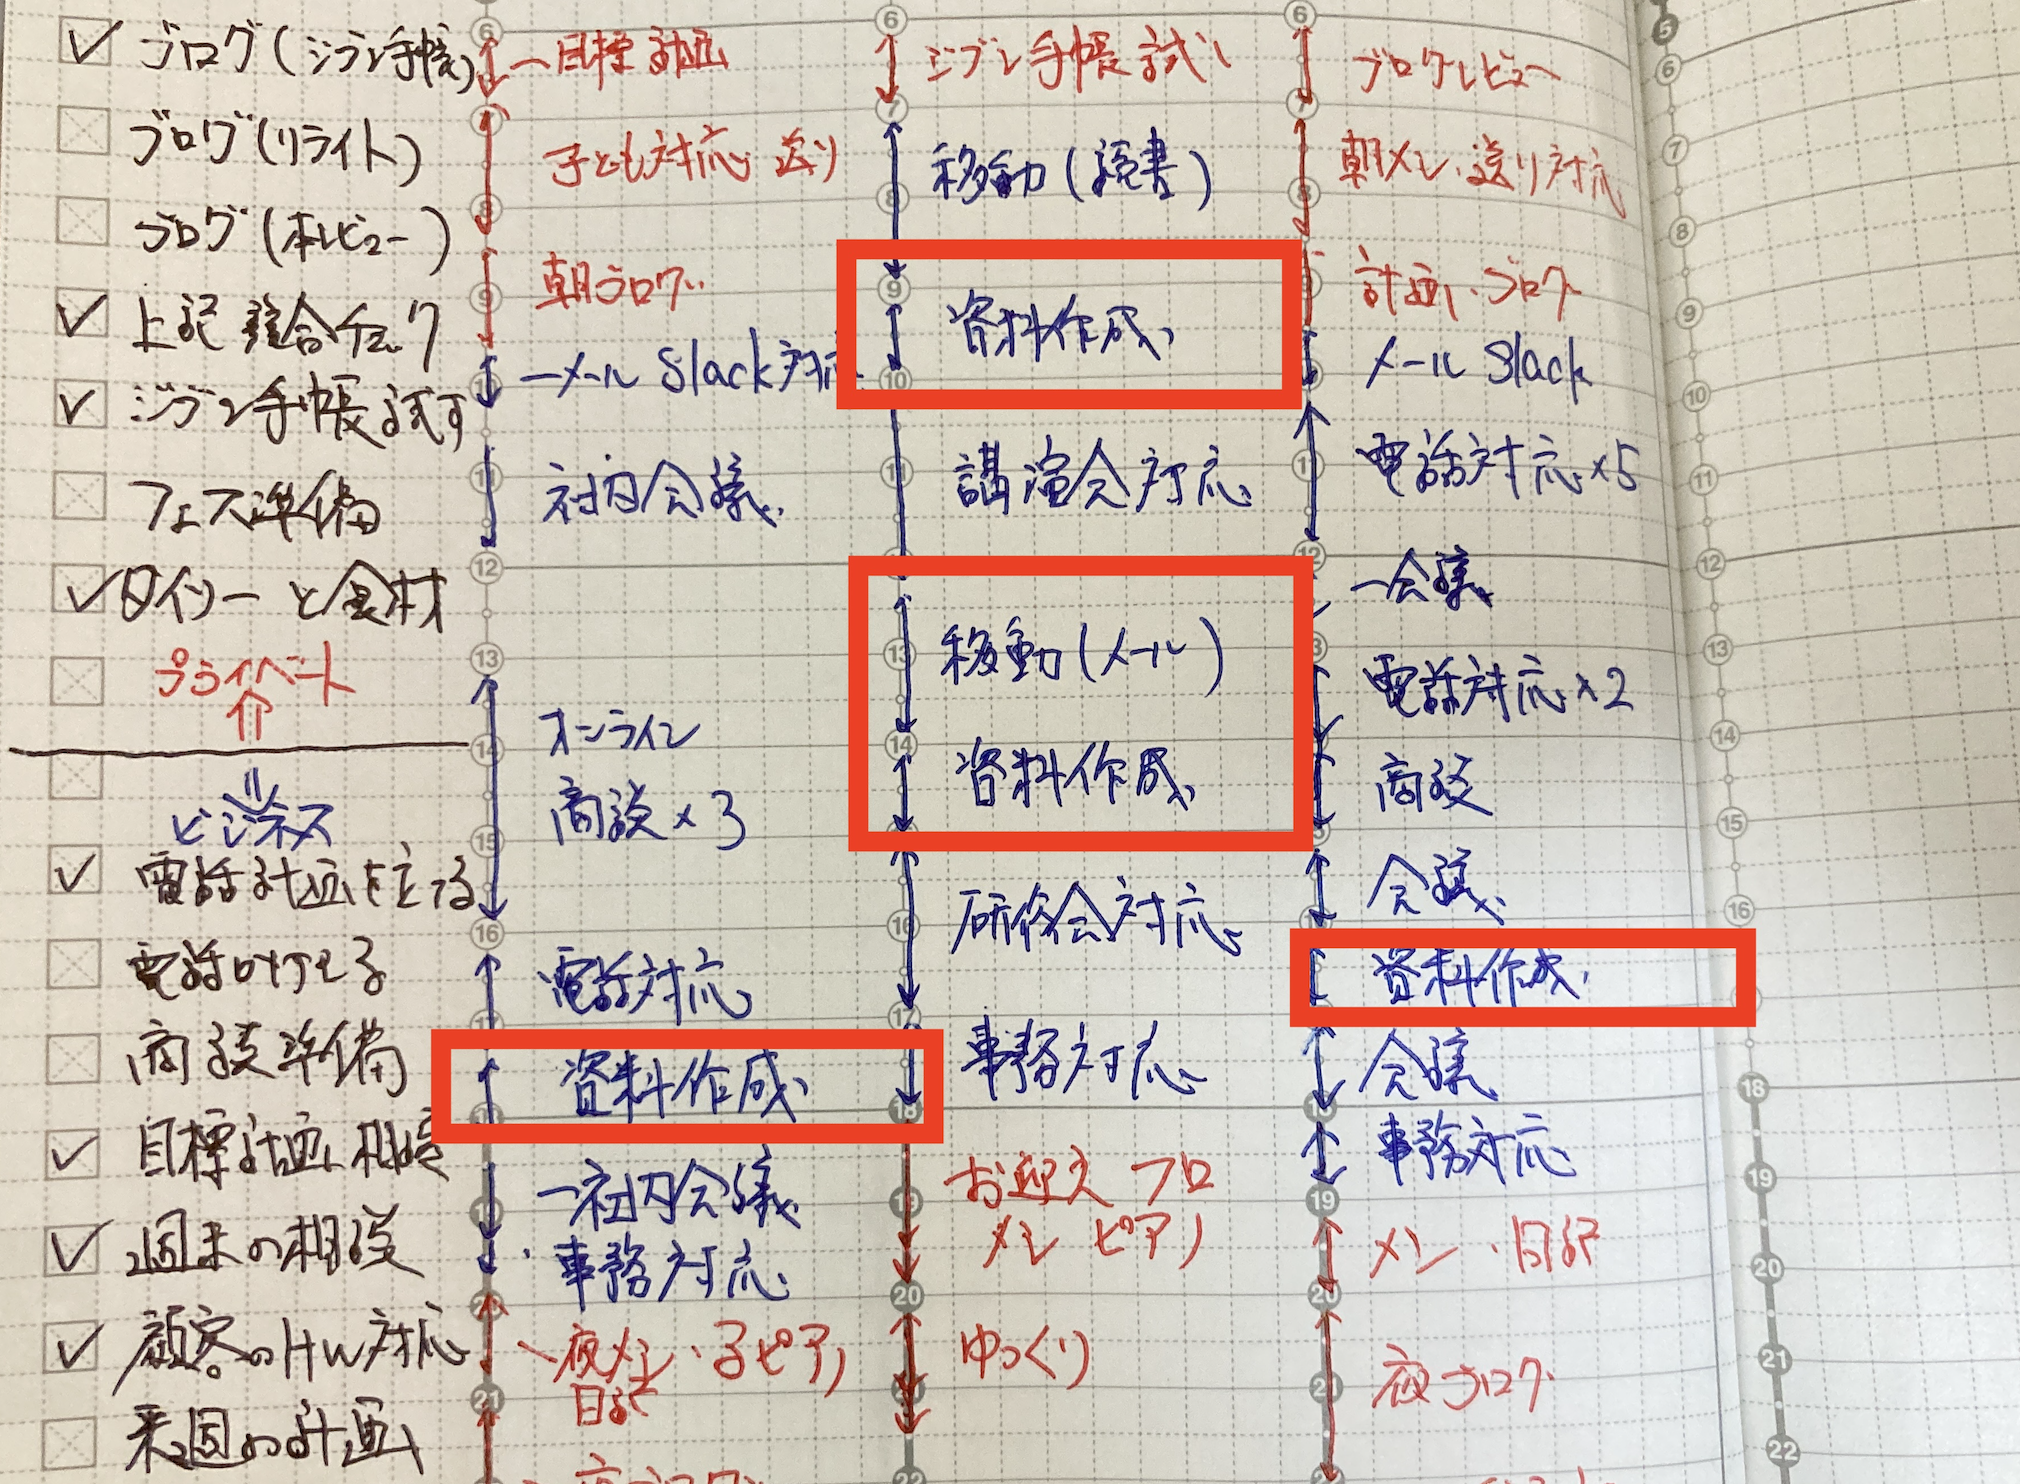 ブログ(ジブン手帳)
ブログ(リライト)
ブログ(本レビュー)
上記 整合チェック
ジブン手帳試す
フェス準備
ダイソーと食材
プライベート
⇑
⇓
ビジネス
電話計画を立てる
電話かける
商談準備
目標計画、相談
週末の相談
顧客のHW対応
来週の計画
6
目標計画
7
子ども対応 送り
8
朝ブログ
9
メール Slack対応
10
社内会議
11
12
13
オンライン
商談×3
14
15
16
電話対応
17
資料作成
18
社内会議
19
事務対応
20
夜メシ・子ピアノ
日記
21
6
ジブン手帳試し
7
移動(読書)
8
9
資料作成
10
講演会対応
11
移動(メール)
13
14
資料作成
研修会対応
16
17
事務対応
18
お迎え フロ
メシ ピアノ
19
20
ゆっくり
22
6
ブログレビュー
7
朝メシ・送り対応
8
計画・ブログ
メール Slack
電話対応×5
12
会議
電話対応×2
商談
会議
資料作成
会議
18
事務対応
19
メシ・日記
20
夜ブログ
21
5
6
7
8
9
10
11
12
13
14
15
16
18
19
20
21
22